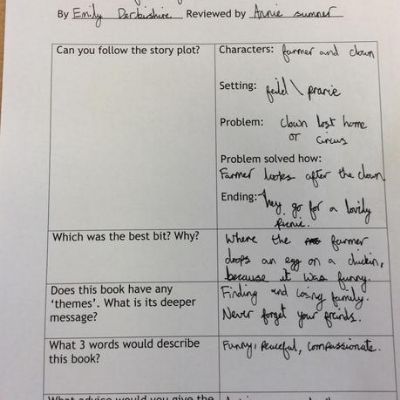 By Emily Derbishire Reviewed by Annie sumner
Can you follow the story plot?
Characters: farmer and clown
Setting: feild \ prarie
Problem: Clown lost home
or circus
Problem solved how:
Farmer looks after the clown
Ending: They go for a lovily
picnic.
Which was the best bit? Why?
Where the farmer
drops an egg on a chickin,
because it was funny.
Does this book have any
'themes'. What is its deeper
message?
Finding and losing family.
Never forget your freinds.
What 3 words would describe
this book?
Funny, Peaceful, Compassionate.
What advice would you give the